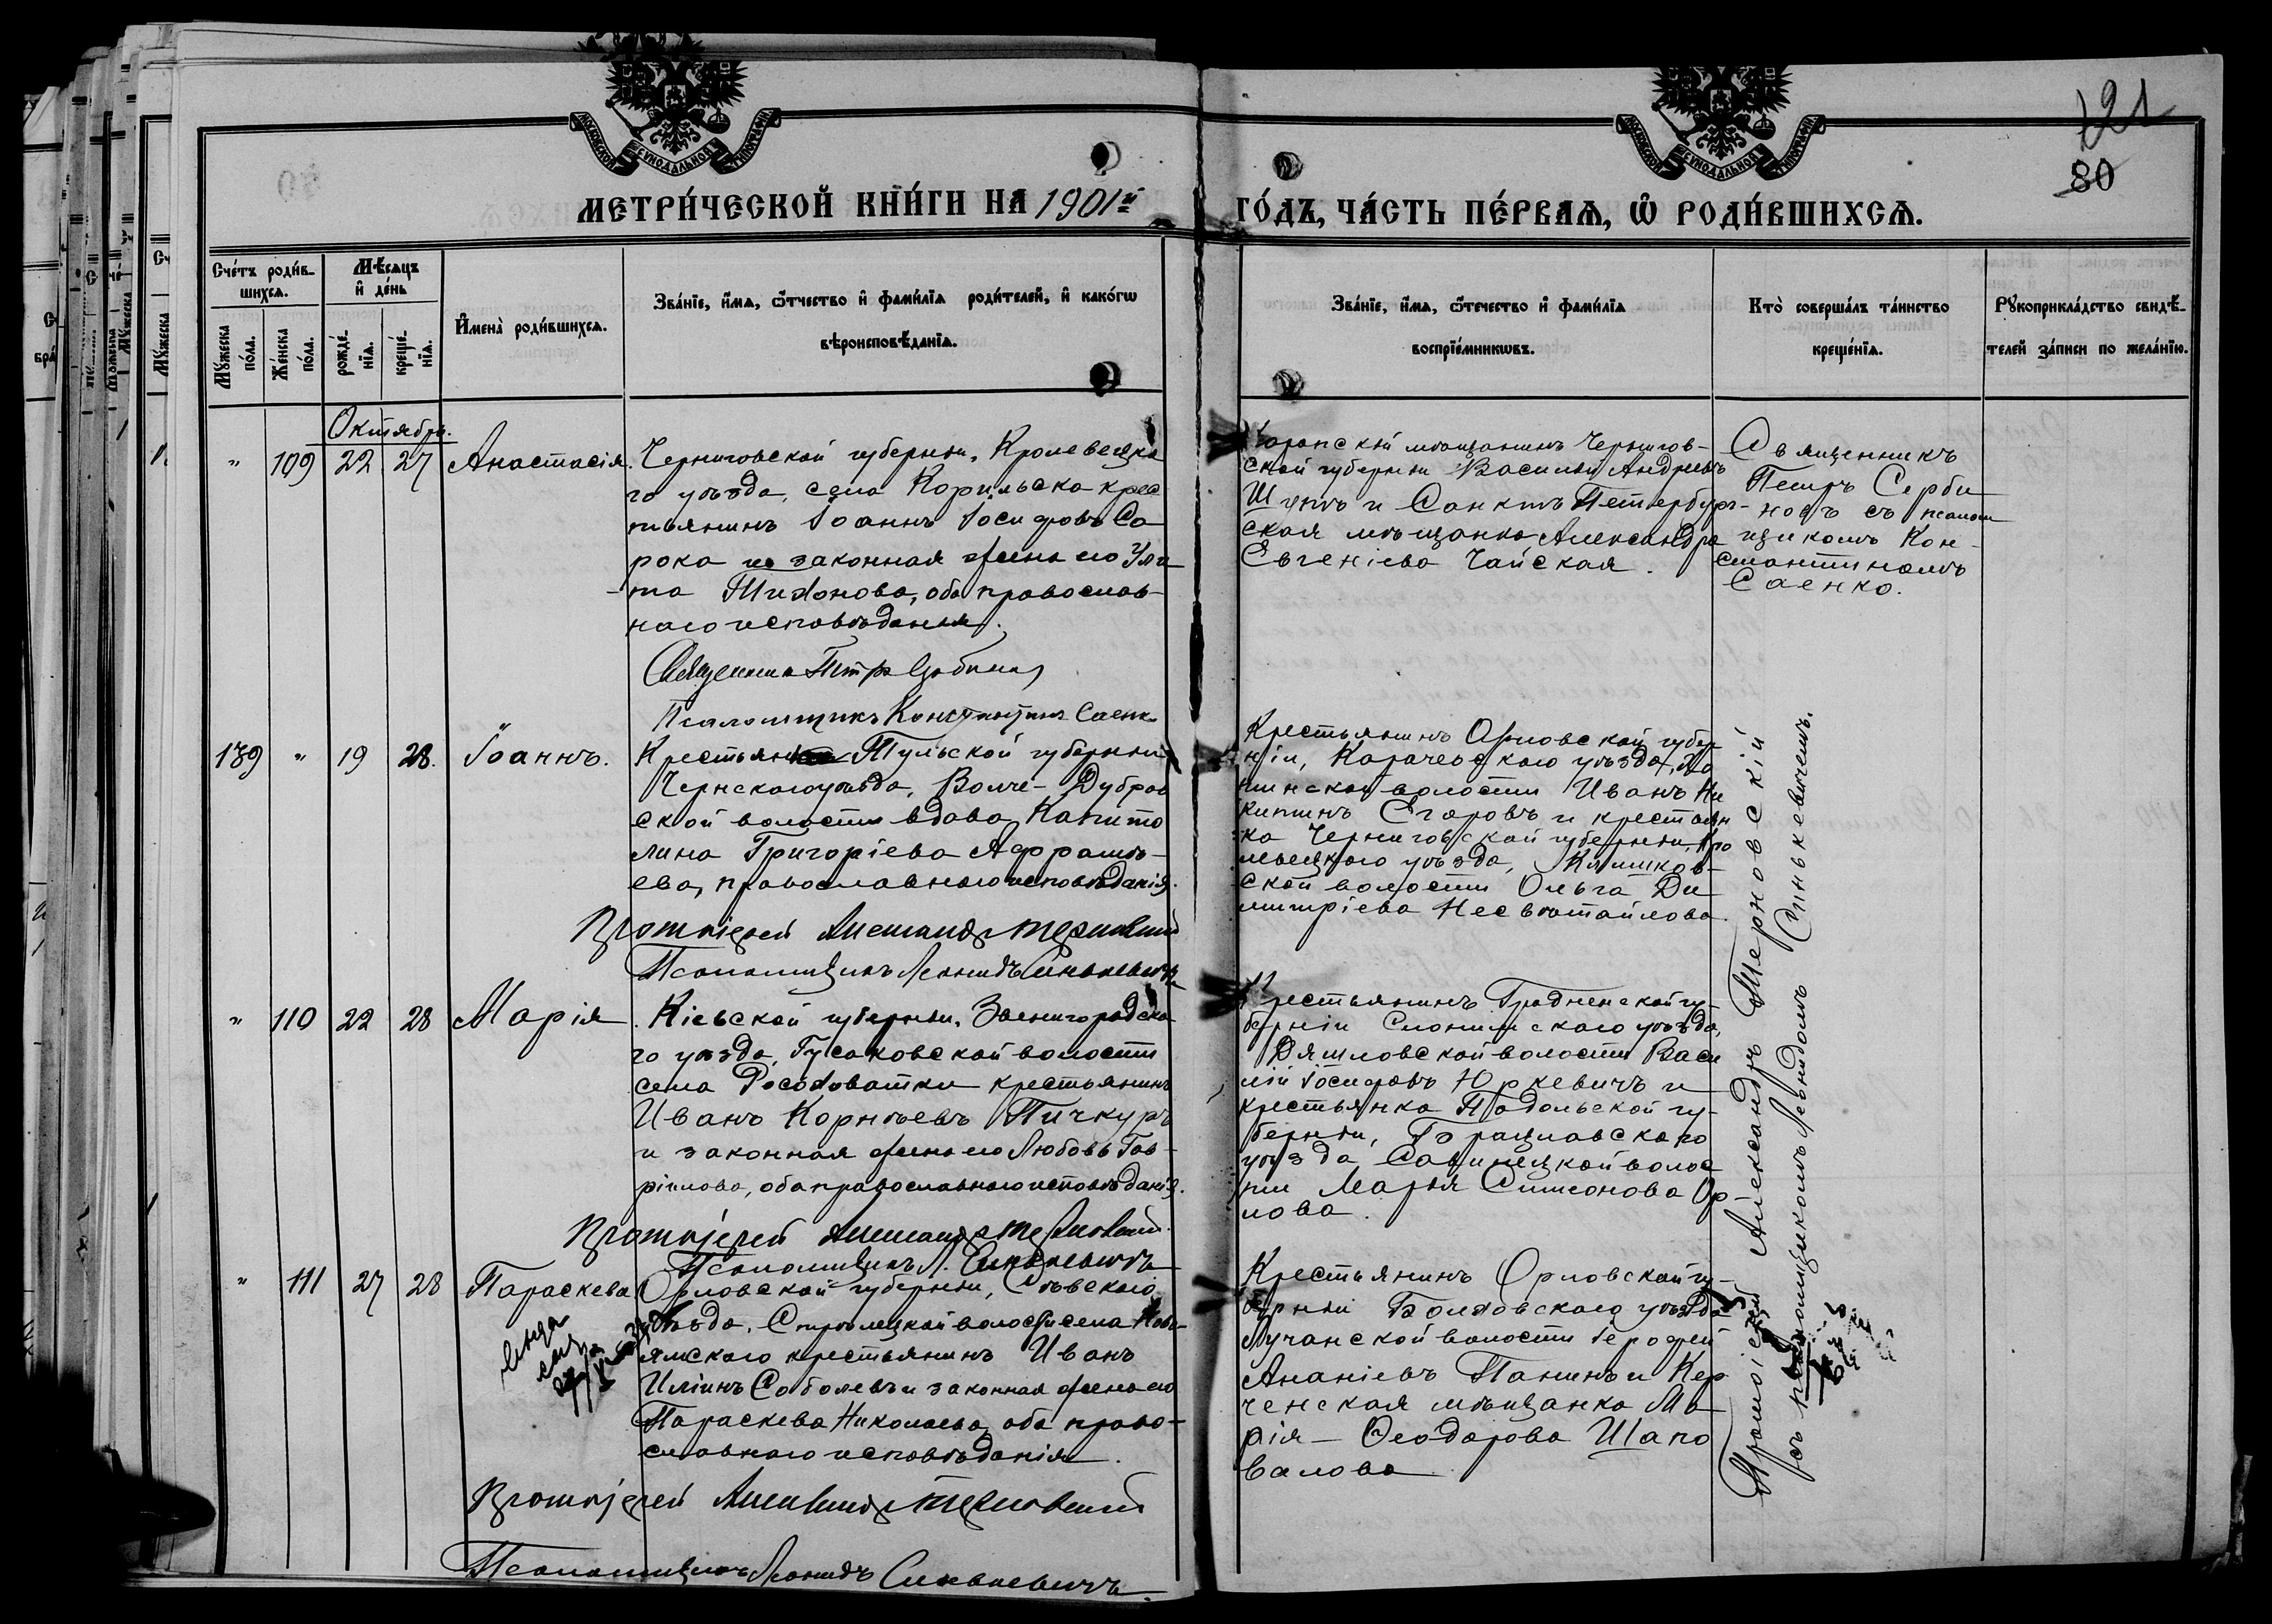 МОСКОВСКОЙ СУНОДАЛЬНОЙ ТИПОГРАФІИ
МОСКОВСКОЙ СУНОДАЛЬНОЙ ТИПОГРАФІИ
121
80
МЕТРИ́ЧЕСКОЙ КНИ́ГИ НА 1901й
ГО́ДЪ, ЧА́СТЬ ПЕ́РВАѦ, Ѡ҆ РОДИ́ВШИХСѦ.
Сче́тъ роди́в-
шихсѧ.
Мѣ́сѧцъ
и҆ де́нь
Мꙋ́жеска
по́ла.
Же́нска
по́ла.
рожде́-
нїѧ.
креще́-
нїѧ.
И҆мена̀ роди́вшихсѧ.
Зва́нїе, и҆́мѧ, ѻ҆́тчество и҆ фами́лїѧ роди́телей, и҆ како́гѡ
вѣроисповѣ́данїѧ.
Зва́нїе, и҆́мѧ, ѻ҆те́чество и҆ фами́лїѧ
воспрїе́мникѡвъ.
Кто̀ соверша́лъ та́инство
креще́нїѧ.
Рꙋкоприкла́дство свидѣ́-
телей за́писи по жела́нїю.
Октябрь.
" 109 22 27 Анастасія.
Черниговской губерніи, Кролевецка
го уѣзда, села Корильска крес
тьянинъ Іоаннъ Іосифовъ Со
рока и законная жена его Ули
та Тихонова, оба православ-
наго исповѣданія.
Священникъ Петръ Сербиновъ
Псаломщикъ Константинъ Саенко
мѣщанинъ Чернигов-
ской губерніи Василій Андреевъ
и Санктъ Петербург-
ская мѣщанка Александра
Евгеніева Чайская.
Священникъ
Петръ Серби
новъ съ псалом
щикомъ Кон-
стантиномъ
Саенко.
139 " 19 28. Іоаннъ.
Тульской губерніи
Чернскаго уѣзда, Волче-Дубров
ской волости вдова Капито
лина Григоріева
ева, православнаго исповѣданія.
Протоіерей Александръ Терновскій
Псаломщикъ Леонидъ Синькевичъ
Крестьянинъ Орловской губер
ніи, Карачевскаго уѣзда,
волости Иванъ Ни
китинъ Егоровъ и крестьян
ка Черниговской губерніи, Кро
левецкаго уѣзда, Клишков-
ской волости Ольга Ди
митріева Несвѣтайлова.
" 110 22 28 Марія
Кіевской губерніи, Звенигородска
го уѣзда, Гусаковской волости
села Росоховатки крестьянинъ
Иванъ Корнѣевъ Пичкуръ
и законная жена его Любовь Гав-
ріилова, оба православнаго исповѣданія.
Протоіерей Александръ Терновскій.
Псаломщикъ Л. Синькевичъ
Крестьянинъ Гродненской гу-
берніи Слонимскаго уѣзда,
волости Васи
лій Іосифовъ Юркевичъ и
крестьянка Подольской гу-
берніи, Брацлавскаго
уѣзда Савинецкой волос
ти Марья Симеонова Ор-
лова.
" 111 27 28 Параскева
Орловской губерніи, Сѣвскаго
уѣзда, волости села Ново-
ямскаго крестьянинъ Иванъ
Иліинъ Соболевъ и законная жена его
Параскева Николаева, оба право-
славнаго исповѣданія.
Протоіерей Александръ Терновскій
Псаломщикъ Леонидъ Синькевичъ.
Крестьянинъ Орловской гу-
берніи Болховскаго уѣзда
Лучанской волости Іерофей
Ананіевъ Панинъ и Кер
ченская мѣщанка Ма
рія Ѳеодорова Шапо
валова
Протоіерей Александръ Терновскій
съ псаломщикомъ Леонидомъ Синькевичемъ.